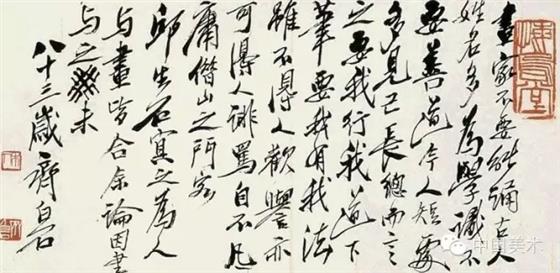 畫家不要能誦古人
姓名多為學識不
要善道今人短處
多見己長總而言
之要我行我道下
筆要我有我法
雖不得人歡譽亦
可得人誹罵自不凡
庸借山之門客
邱生石冥之為人
与畫皆合余論因書
与之癸未
八十三歲齊白石
悔烏堂
中国美术